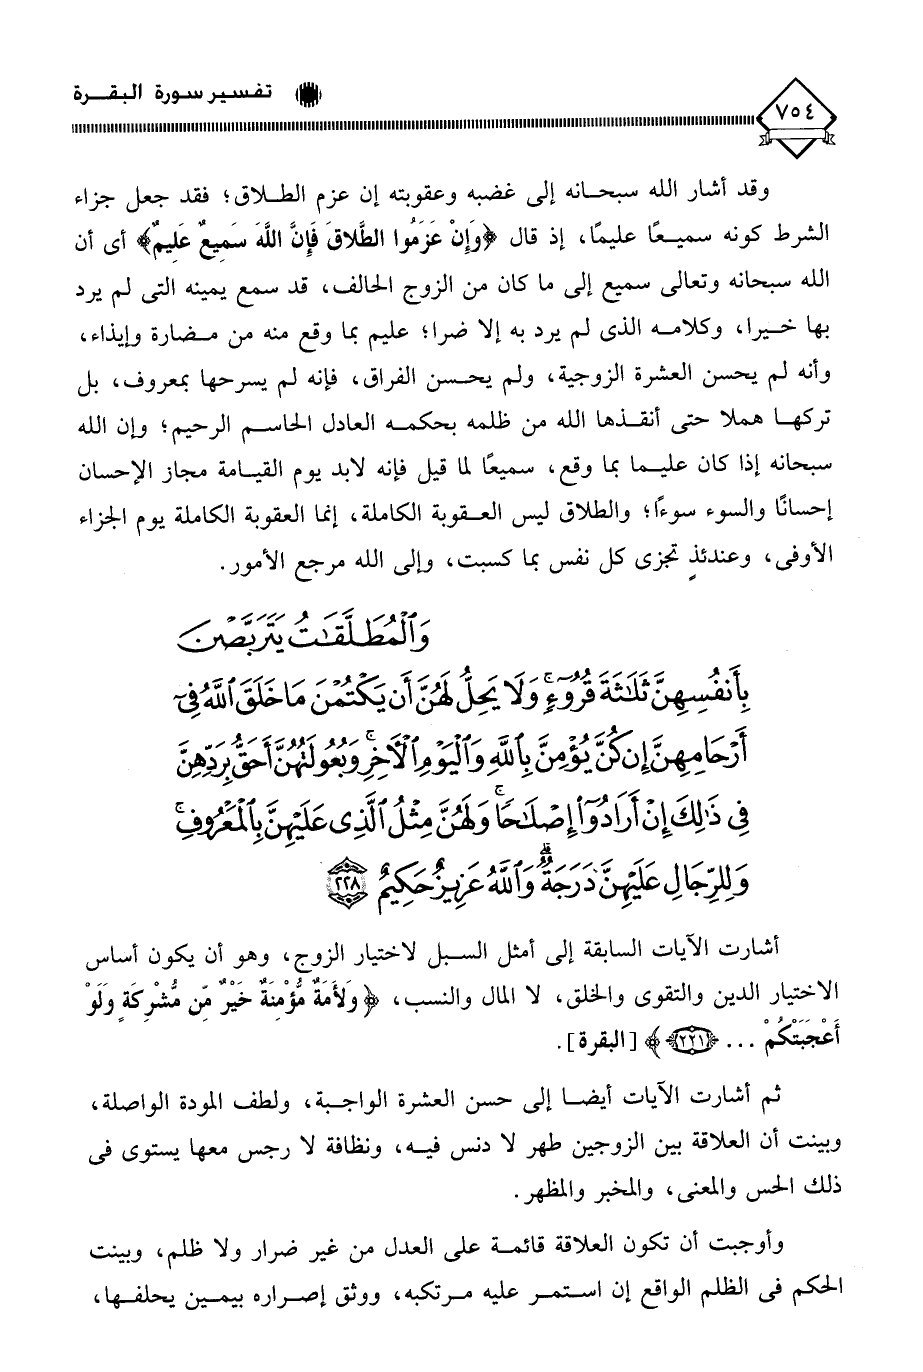 ٧٥٤
تفسير سورة البقرة
وقد أشار الله سبحانه إلى غضبه وعقوبته إن عزم الطلاق؛ فقد جعل جزاء
الشرط كونه سميعًا عليمًا، إذ قال ﴿وَإِنْ عَزَمُوا الطَّلاقَ فَإِنَّ اللَّهَ سَمِيعٌ عَلِيمٌ﴾ أى أن
الله سبحانه وتعالى سميع إلى ما كان من الزوج الحالف، قد سمع يمينه التى لم يرد
بها خيرا، وكلامه الذى لم يرد به إلا ضرا؛ عليم بما وقع منه من مضارة وإيذاء،
وأنه لم يحسن العشرة الزوجية، ولم يحسن الفراق، فإنه لم يسرحها بمعروف، بل
تركها هملا حتى أنقذها الله من ظلمه بحكمه العادل الحاسم الرحيم؛ وإن الله
سبحانه إذا كان عليما بما وقع، سميعًا لما قيل فإنه لابد يوم القيامة مجاز الإحسان
إحسانًا والسوء سوءًا؛ والطلاق ليس العقوبة الكاملة، إنما العقوبة الكاملة يوم الجزاء
الأوفى، وعندئذٍ تجزى كل نفس بما كسبت، وإلى الله مرجع الأمور.
وَٱلْمُطَلَّقَٰتُ يَتَرَبَّصْنَ
بِأَنفُسِهِنَّ ثَلَٰثَةَ قُرُوٓءٍ ۚ وَلَا يَحِلُّ لَهُنَّ أَن يَكْتُمْنَ مَا خَلَقَ ٱللَّهُ فِىٓ
أَرْحَامِهِنَّ إِن كُنَّ يُؤْمِنَّ بِٱللَّهِ وَٱلْيَوْمِ ٱلْأَخِرِ ۚ وَبُعُولَتُهُنَّ أَحَقُّ بِرَدِّهِنَّ
فِى ذَٰلِكَ إِنْ أَرَادُوٓا۟ إِصْلَٰحًا ۚ وَلَهُنَّ مِثْلُ ٱلَّذِى عَلَيْهِنَّ بِٱلْمَعْرُوفِ ۚ
وَلِلرِّجَالِ عَلَيْهِنَّ دَرَجَةٌ ۗ وَٱللَّهُ عَزِيزٌ حَكِيمٌ ٢٢٨
أشارت الآيات السابقة إلى أمثل السبل لاختيار الزوج، وهو أن يكون أساس
الاختيار الدين والتقوى والخلق، لا المال والنسب، ﴿وَلأَمَةٌ مُّؤْمِنَةٌ خَيْرٌ مِّن مُّشْرِكَةٍ وَلَوْ
أَعْجَبَتْكُمْ ... (٢٢١)﴾ [البقرة].
ثم أشارت الآيات أيضا إلى حسن العشرة الواجبة، ولطف المودة الواصلة،
وبينت أن العلاقة بين الزوجين طهر لا دنس فيه، ونظافة لا رجس معها يستوى فى
ذلك الحس والمعنى، والمخبر والمظهر.
وأوجبت أن تكون العلاقة قائمة على العدل من غير ضرار ولا ظلم، وبينت
الحكم فى الظلم الواقع إن استمر عليه مرتكبه، ووثق إصراره بيمين يحلفها،